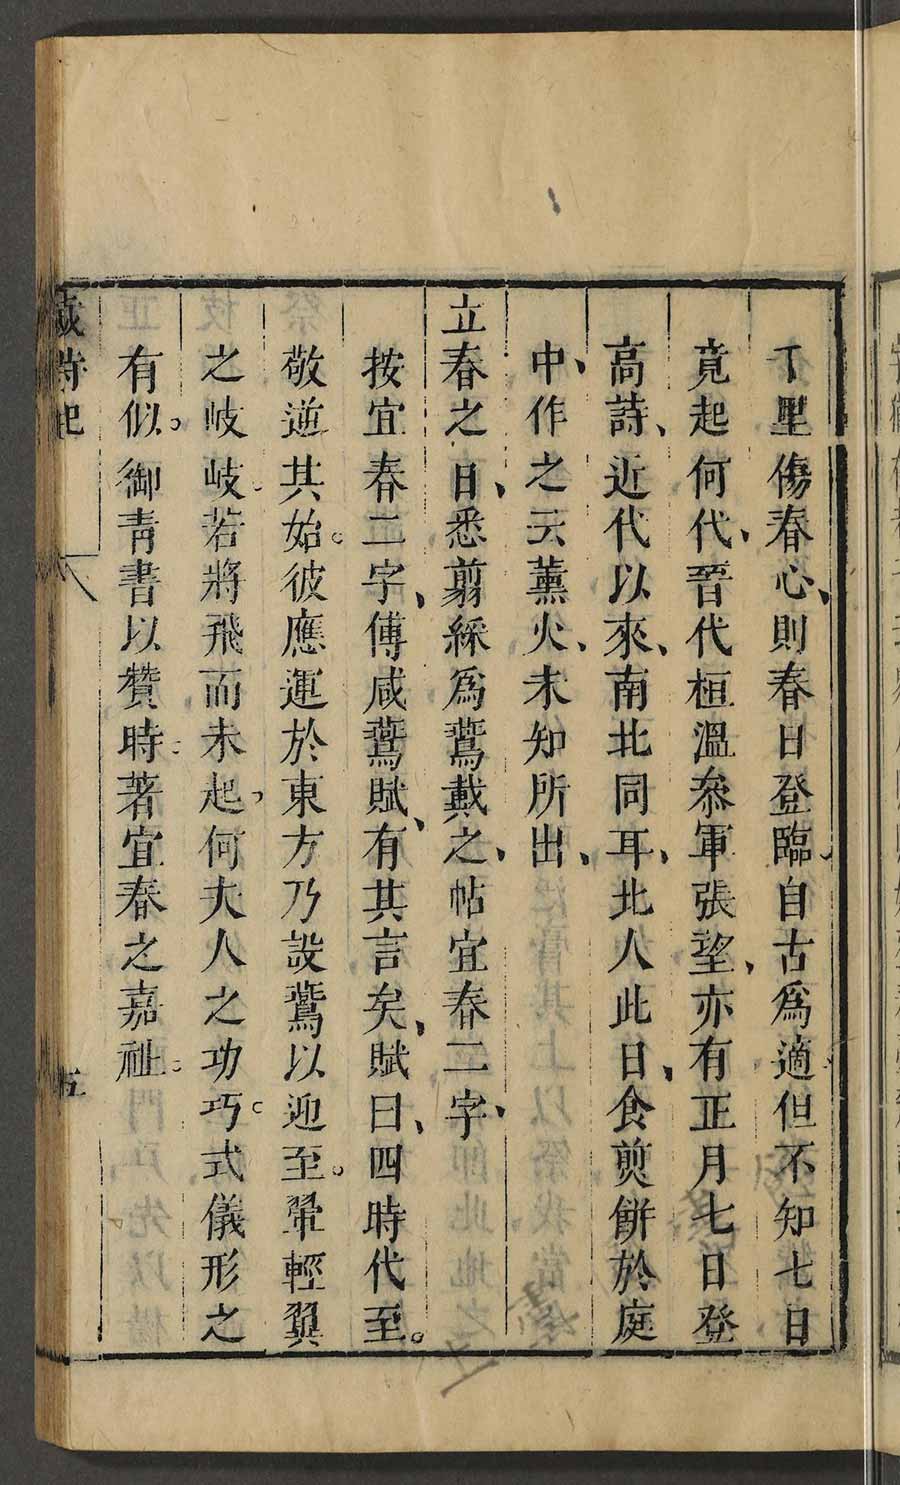 千里傷春心、則春日登臨自古爲適但不知七日
竟起何代、晉代桓溫叅軍張望、亦有正月七日登
高詩、近代以來、南北同耳、北人此日、食煎餅於庭
中、作之云薰火、未知所出、
立春之日、悉剪綵爲鷰戴之、帖宜春二字、
按宜春二字、傅咸鷰賦、有其言矣、賦曰、四時代至。
敬逆其始。彼應運於東方乃設鷰以迎至。翬輕翼
之岐岐若將飛而未起。何夫人之功巧。式儀形之
有似。御青書以贊時。著宜春之嘉祉。
歲時記
五